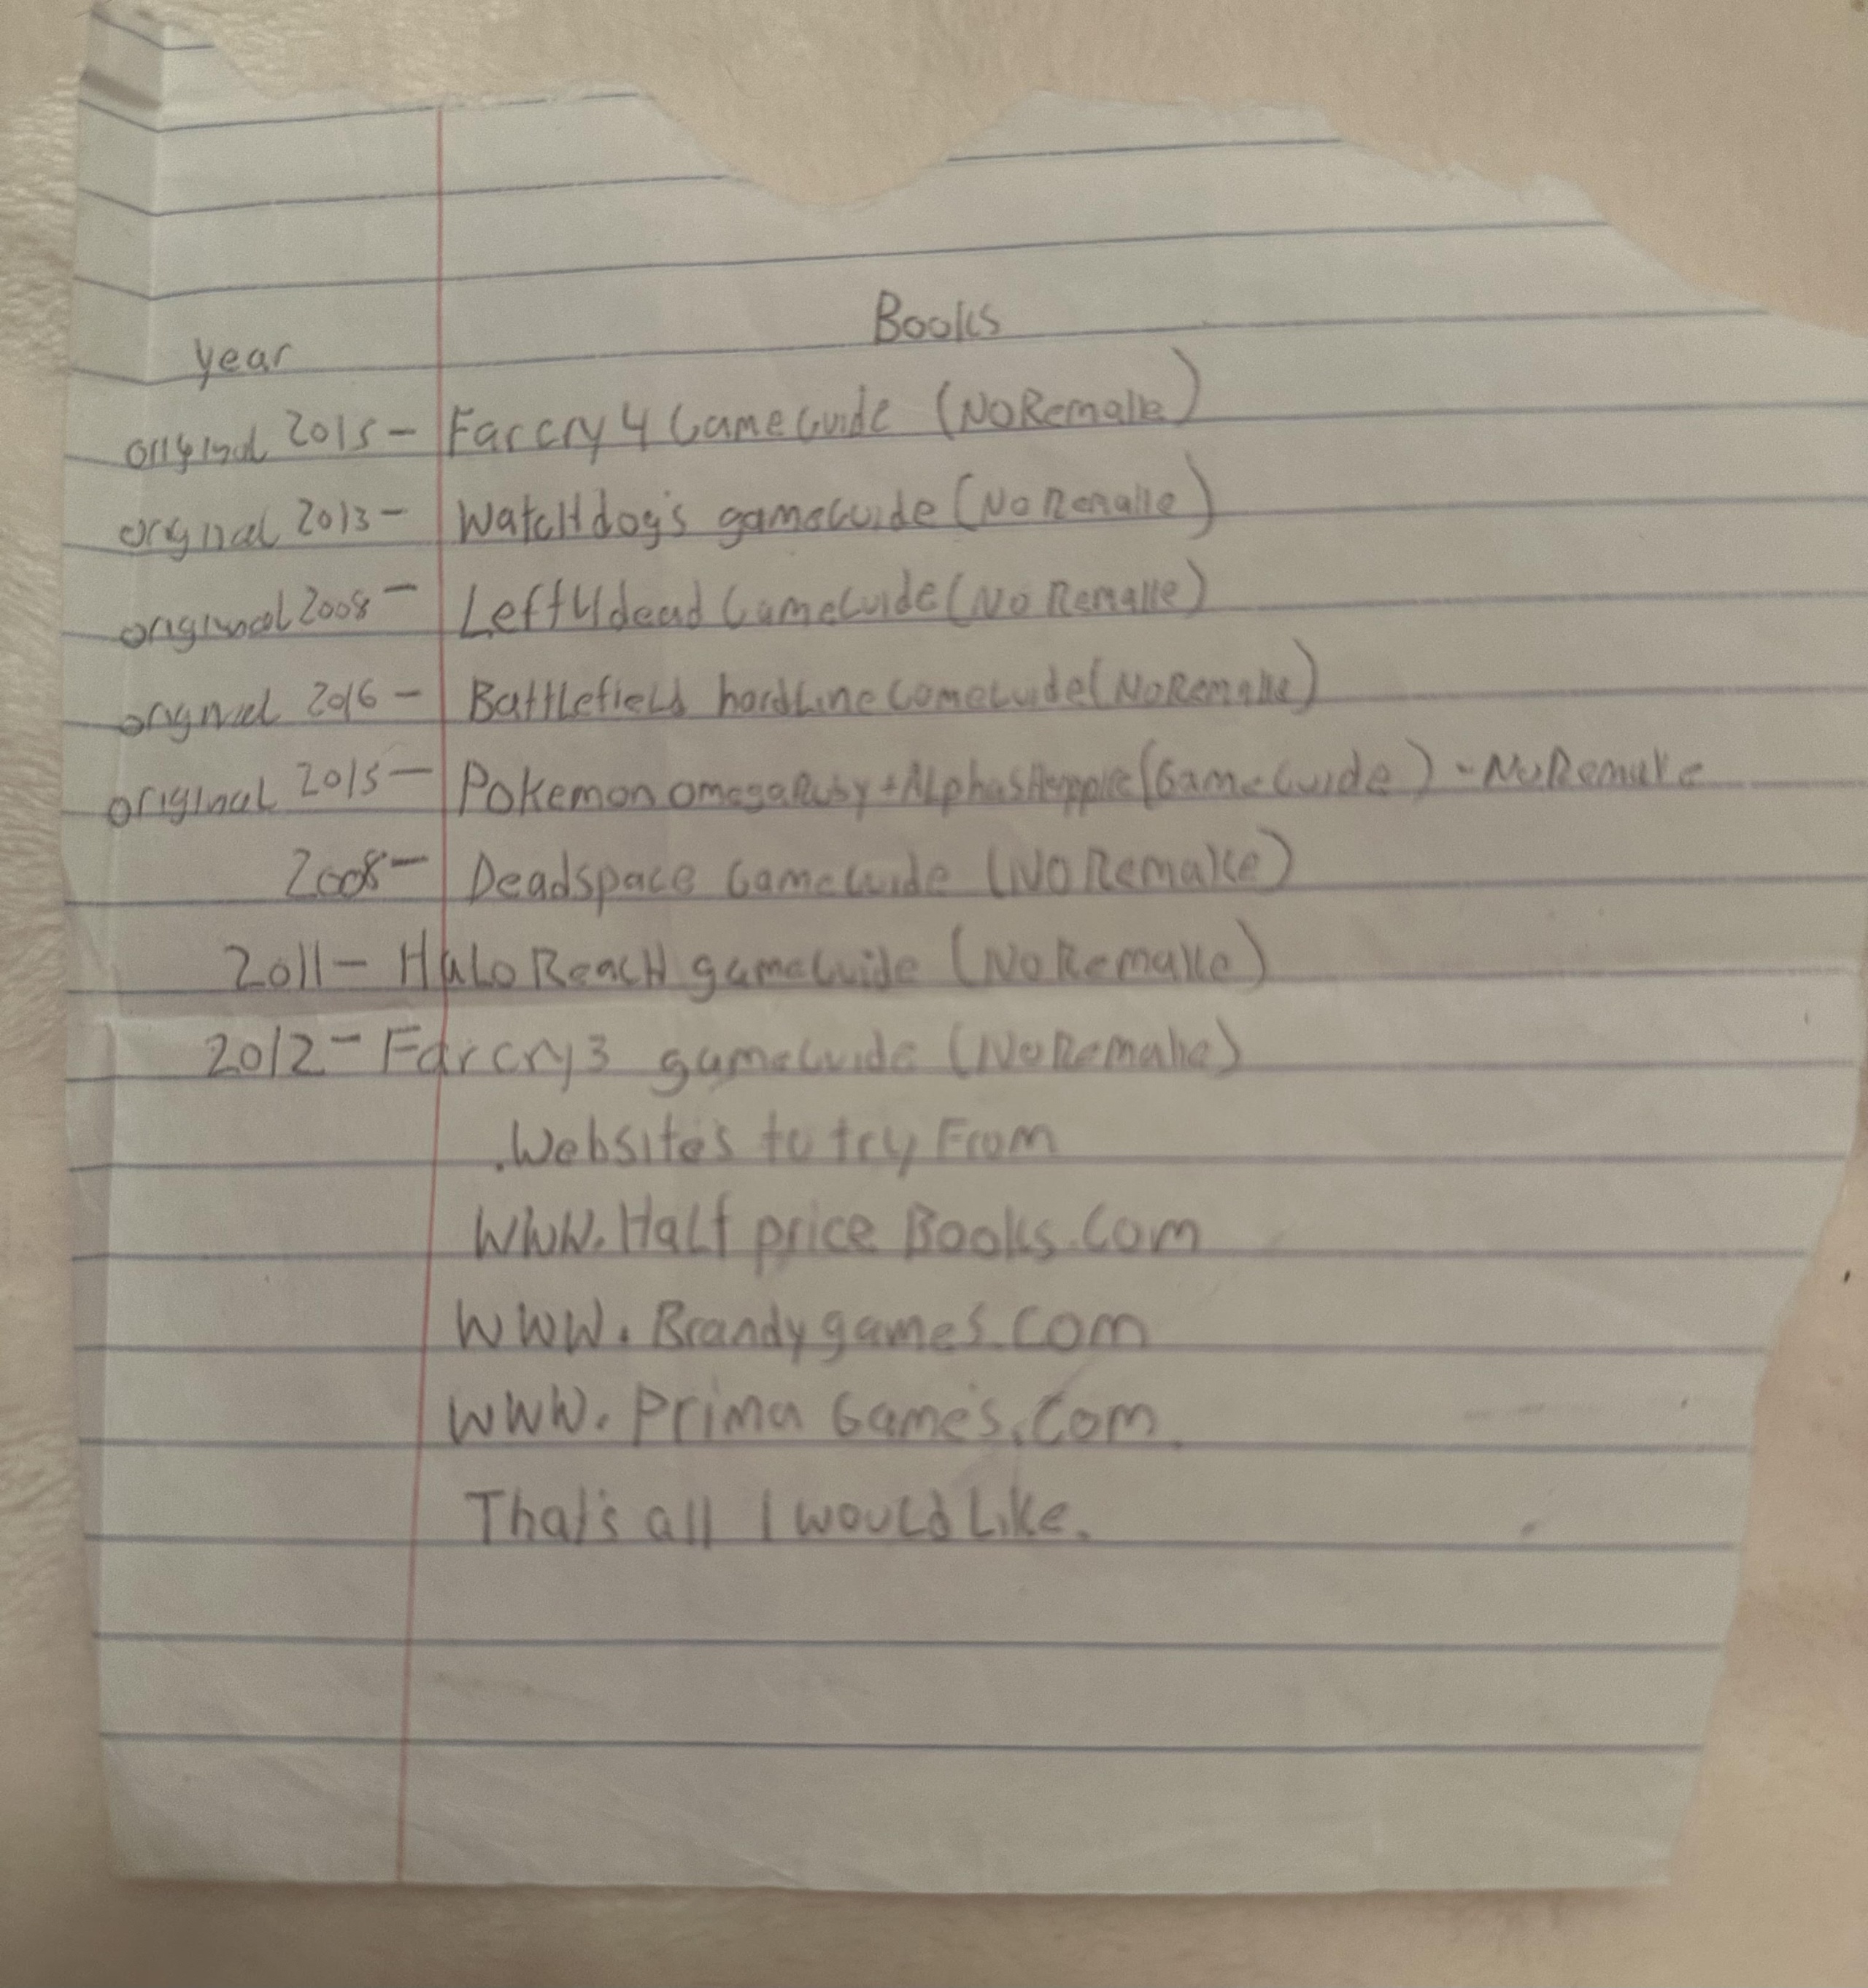 Books
year
original 2015 - Farcry 4 GameGuide (NoRemake)
original 2013 - WatcHdog's gameGuide (No Remake)
original 2008 - Left4dead GameGuide (No Remake)
original 2016 - Battlefield hardLine GameGuide (NoRemake)
original 2015 - Pokemon OmegaRuby + ALpha (GameGuide) - NoRemake
2008 - Deadspace GameGuide (NO Remake)
2011 - HaLo ReacH gameGuide (No Remake)
2012 - Farcry3 gameGuide (NoRemake)
.Website's to try From
WWW.Half price Books.Com
WWW.Brandygames.com
WWW.Prima Game's.Com.
That's all I wouLd Like.